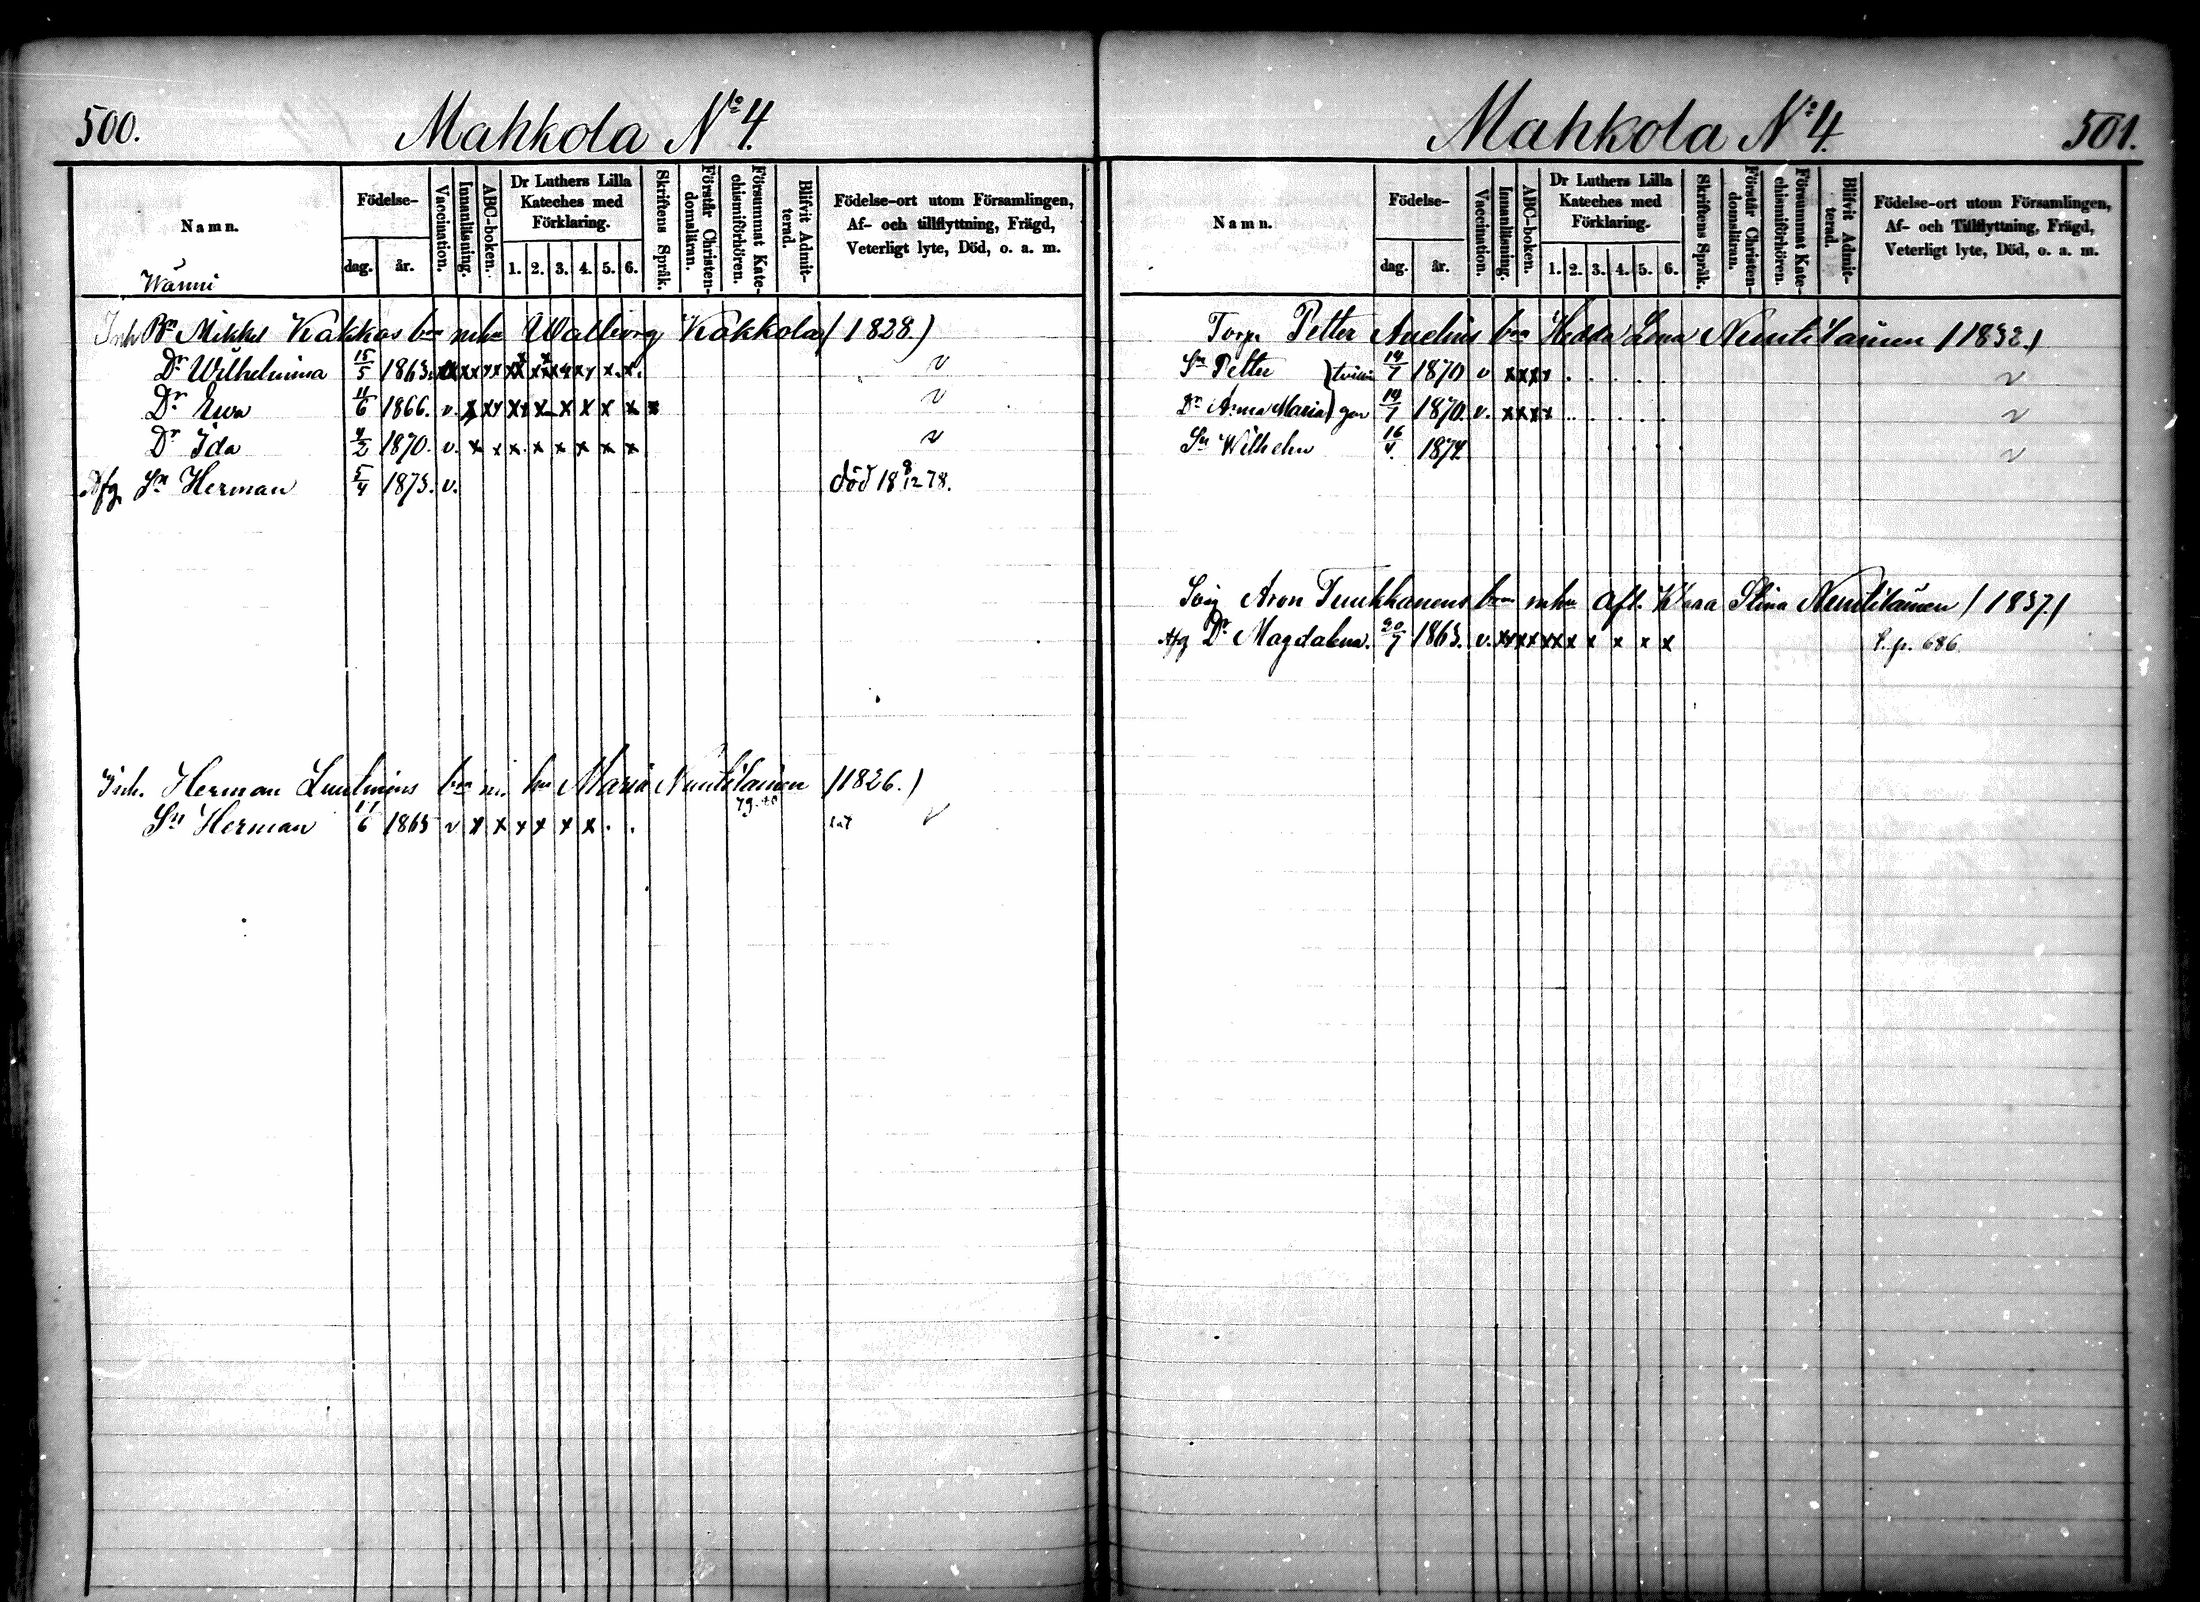 500.
Mahkola No 4.
Namn.
Födelse-
dag.
år.
Vaccination.
Innanläsning.
ABC-boken.
Dr Luthers Lilla
Kateches med
Förklaring.
1. 2. 3. 4. 5. 6.
Skriftens Språk.
Förstår Christen-
domsläran.
Försummat Kate-
chismiförhören.
Blifvit Admit-
terad.
Födelse-ort utom Församlingen,
Af- och tillflyttning, Frägd,
Veterligt lyte, Död, o. a. m.
Wänni
Inh Mikkel Kakkos bn mhu Walborg Kakkola (1828.)
Dr Wilhelmina 15/5 1863. v
Dr Ewa 11/6 1866. v. x x x x x x x v
Dr Ida 4/2 1870. v. x x x x x x x x v
Afg. Sn Herman 5/4 1873. v. död 18 8/12 78.
Inh. Herman bn m. hu Maria (1826.)
Sn Herman 6 1865 v x x x x x x . . v
Mahkola No 4.
501.
Namn.
Födelse-
dag.
år.
Vaccination.
Innanläsning.
ABC-boken.
Dr Luthers Lilla
Kateches med
Förklaring.
1. 2. 3. 4. 5. 6.
Skriftens Språk.
Förstår Christen-
domsläran.
Försummat Kate-
chismiförhören.
Blifvit Admit-
terad.
Födelse-ort utom Församlingen,
Af- och Tillflyttning, Frägd,
Veterligt lyte, Död, o. a. m.
Torp. Petter bn Hedda Lena (1832.)
Sn Petter 14/7 1870 v x x x x v
Dr Anna Maria 14/7 1870. v. x x x x v
Sn Wilhelm 1874 v
Aron bn mhu Stina (1837.)
Afg Dr Magdalena. 20/7 1863. v. x x x x x x x x x x P. p. 686.